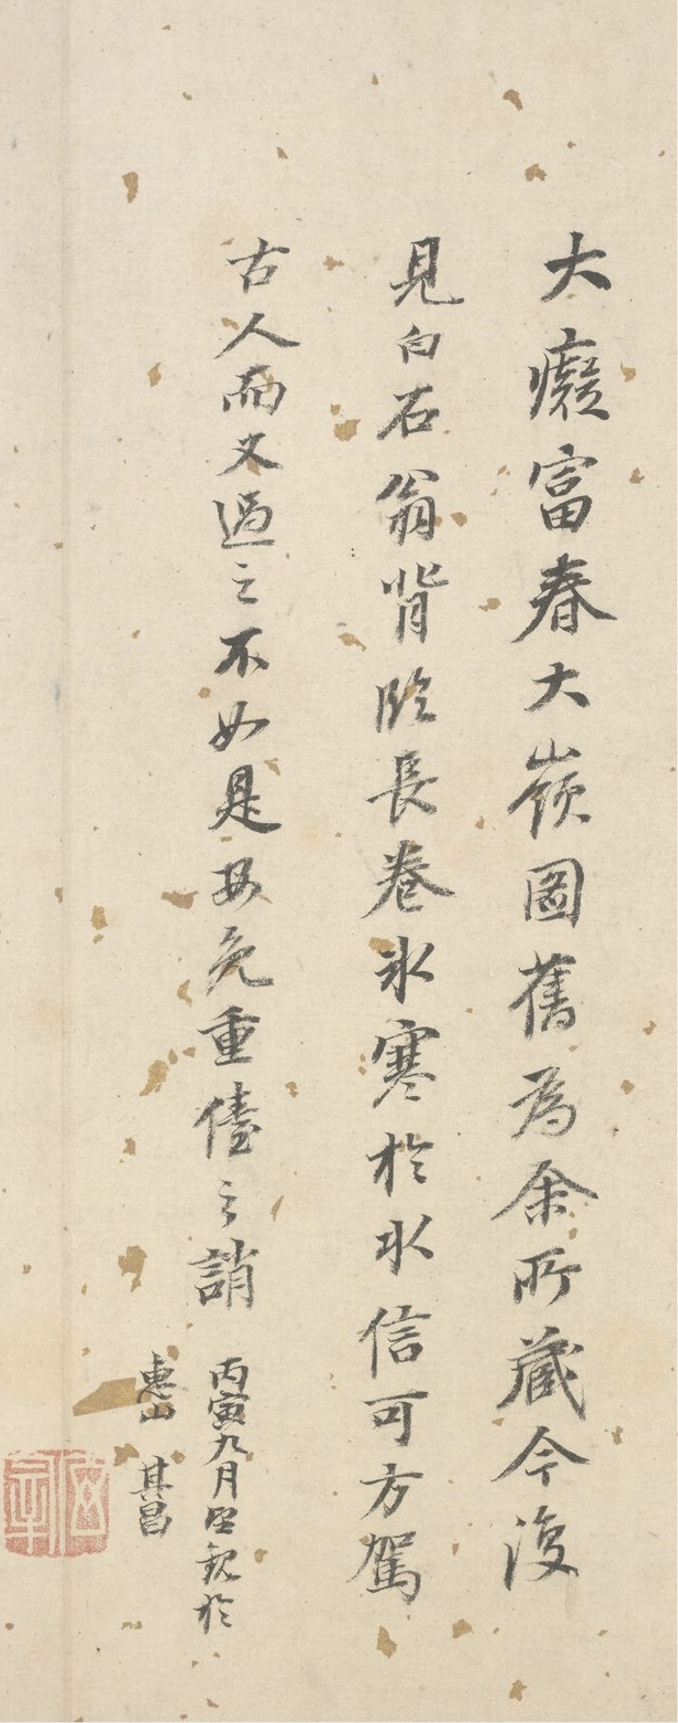 大癡富春大嶺圖舊為余所藏今復
見白石翁背臨長卷冰寒於水信可方駕
古人而又過之不如是安免重儓之誚
丙寅九月望觀於
惠山 其昌